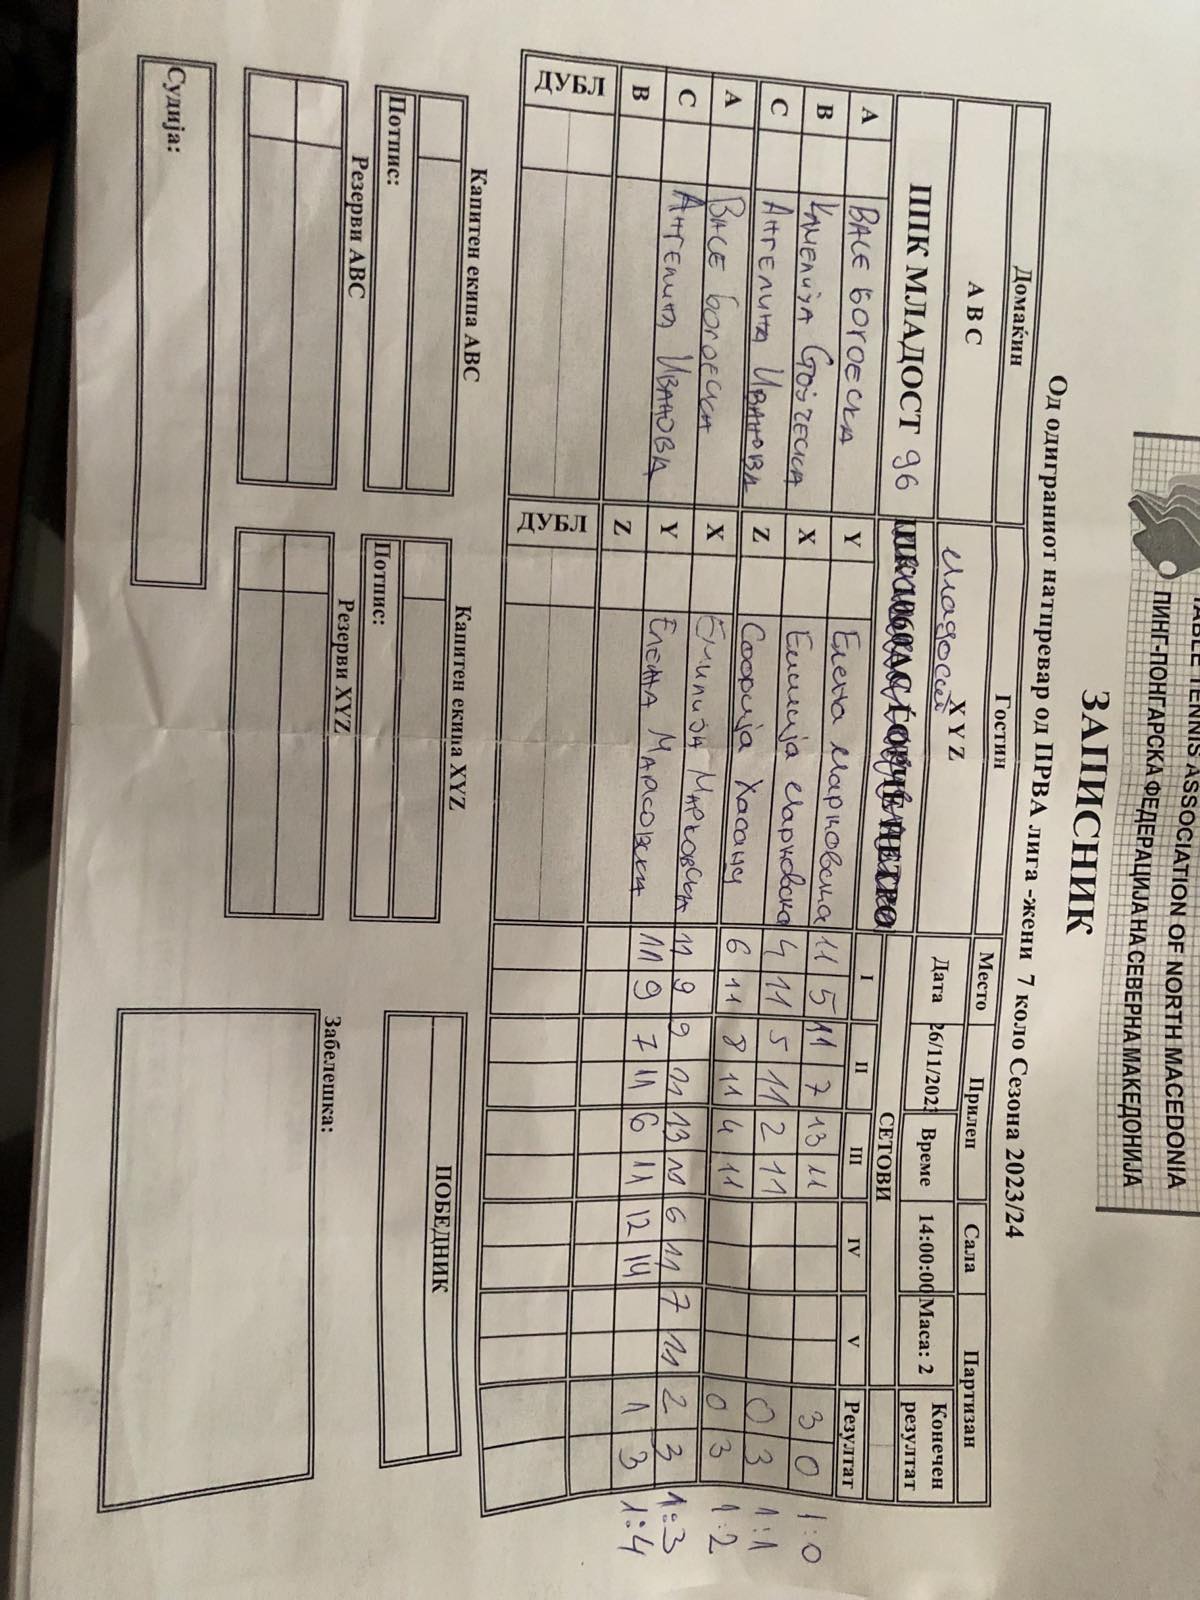 TABLE TENNIS ASSOCIATION OF NORTH MACEDONIA
ПИНГ-ПОНГАРСКА ФЕДЕРАЦИЈА НА СЕВЕРНА МАКЕДОНИЈА
ЗАПИСНИК
Од одиграниот натпревар од ПРВА лига -жени 7 коло Сезона 2023/24
Домаќин Гостин Место Прилеп Сала Партизан
A B C X Y Z Дата 26/11/202 Време 14:00:00 Маса: 2 Конечен резултат
Младост
ППК МЛАДОСТ 96 СЕТОВИ
I II III IV V Резултат
A ВАСЕ БОГОЕСКА Y Елена Марковска 11 5 11 7 13 11 3 0 1:0
B КАМЕЛИЈА ГОЈЧЕСКА X Емилија Марковска 4 11 5 11 2 11 0 3 1:1
C АНГЕЛИНА ИВАНОВА Z Софија Хасани 6 11 8 11 4 11 0 3 1:2
A ВАСЕ БОГОЕСКА X ЕМИЛИЈА МАРКОВСКА 11 9 9 11 13 11 6 11 7 11 2 3 1:3
C АНГЕЛИНА ИВАНОВА Y ЕЛЕНА 11 9 7 11 6 11 12 14 1 3 1:4
B Z
ДУБЛ ДУБЛ
Капитен екипа ABC Капитен екипа XYZ ПОБЕДНИК
Потпис: Потпис:
Резерви ABC Резерви XYZ Забелешка:
Судија: